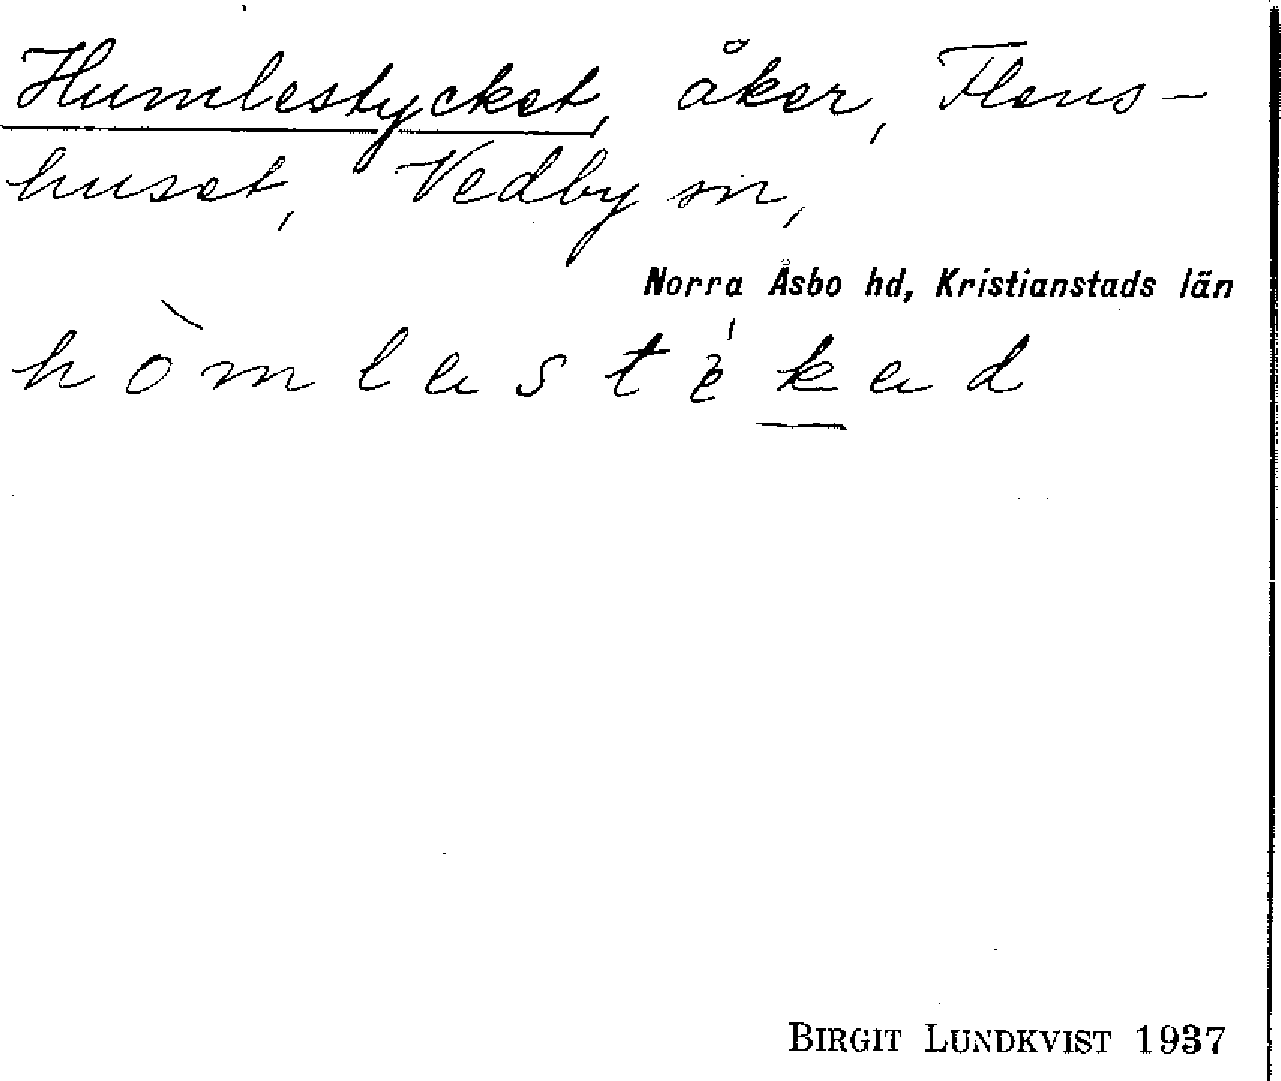 Humlestycket, åker, Flens-
huset, Vedby sn,
Norra Åsbo hd, Kristianstads län
hòmlastékad
BIRGIT LUNDKVIST 1937